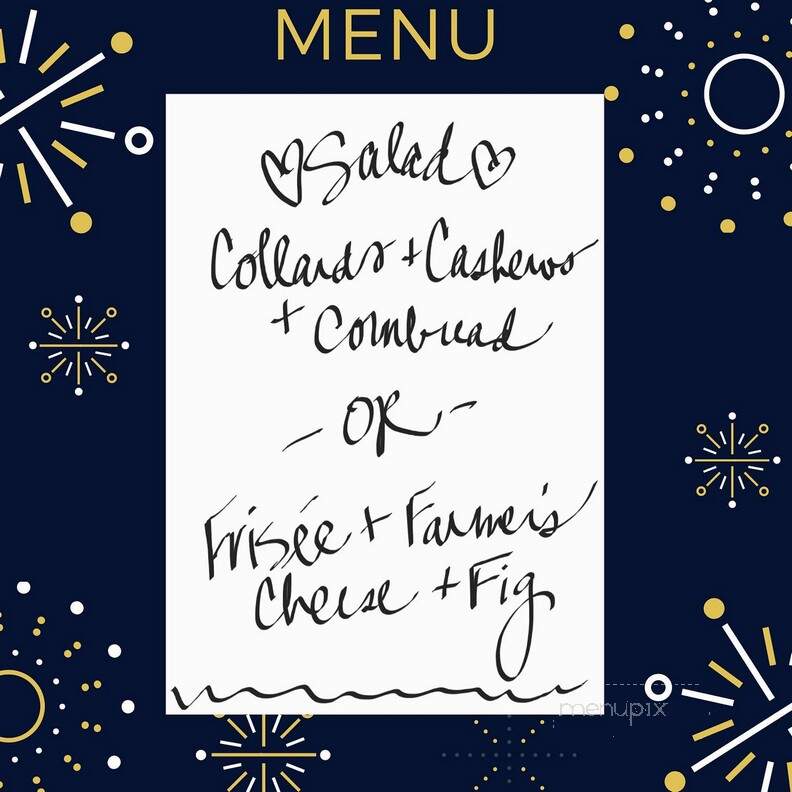 MENU
♡ Salad ♡
Collards + Cashews
+ Cornbread
- OR -
Frisée + Farmer's
Cheese + Fig
menupix